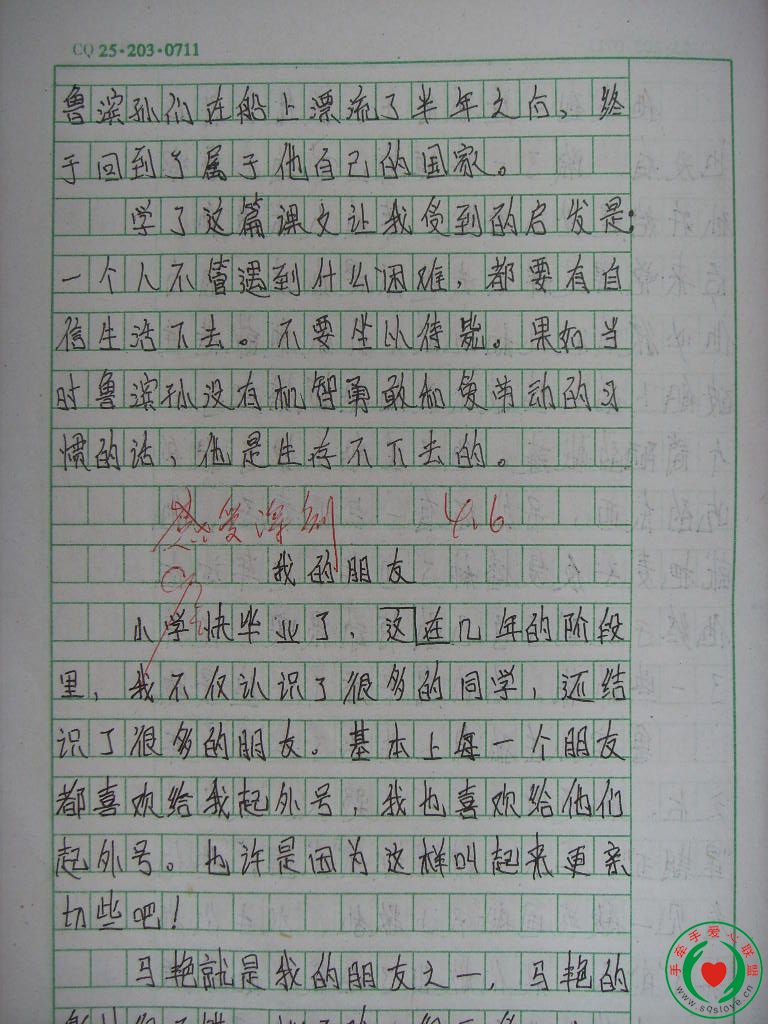 CQ 25·203·0711
鲁滨孙们在船上漂流了半年之后，终
于回到了属于他自己的国家。
学了这篇课文让我受到的启发是：
一个人不管遇到什么困难，都要有自
信生活下去。不要坐以待毙。果如当
时鲁滨孙没有机智勇敢和爱劳动的习
惯的话，他是生存不下去的。
感受深刻 4.6
我的朋友
小学快毕业了，这在几年的阶段
里，我不仅认识了很多的同学，还结
识了很多的朋友。基本上每一个朋友
都喜欢给我起外号，我也喜欢给他们
起外号。也许是因为这样叫起来更亲
切些吧！
马艳就是我的朋友之一，马艳的
手牵手爱心联盟
www.sqsloye.cn